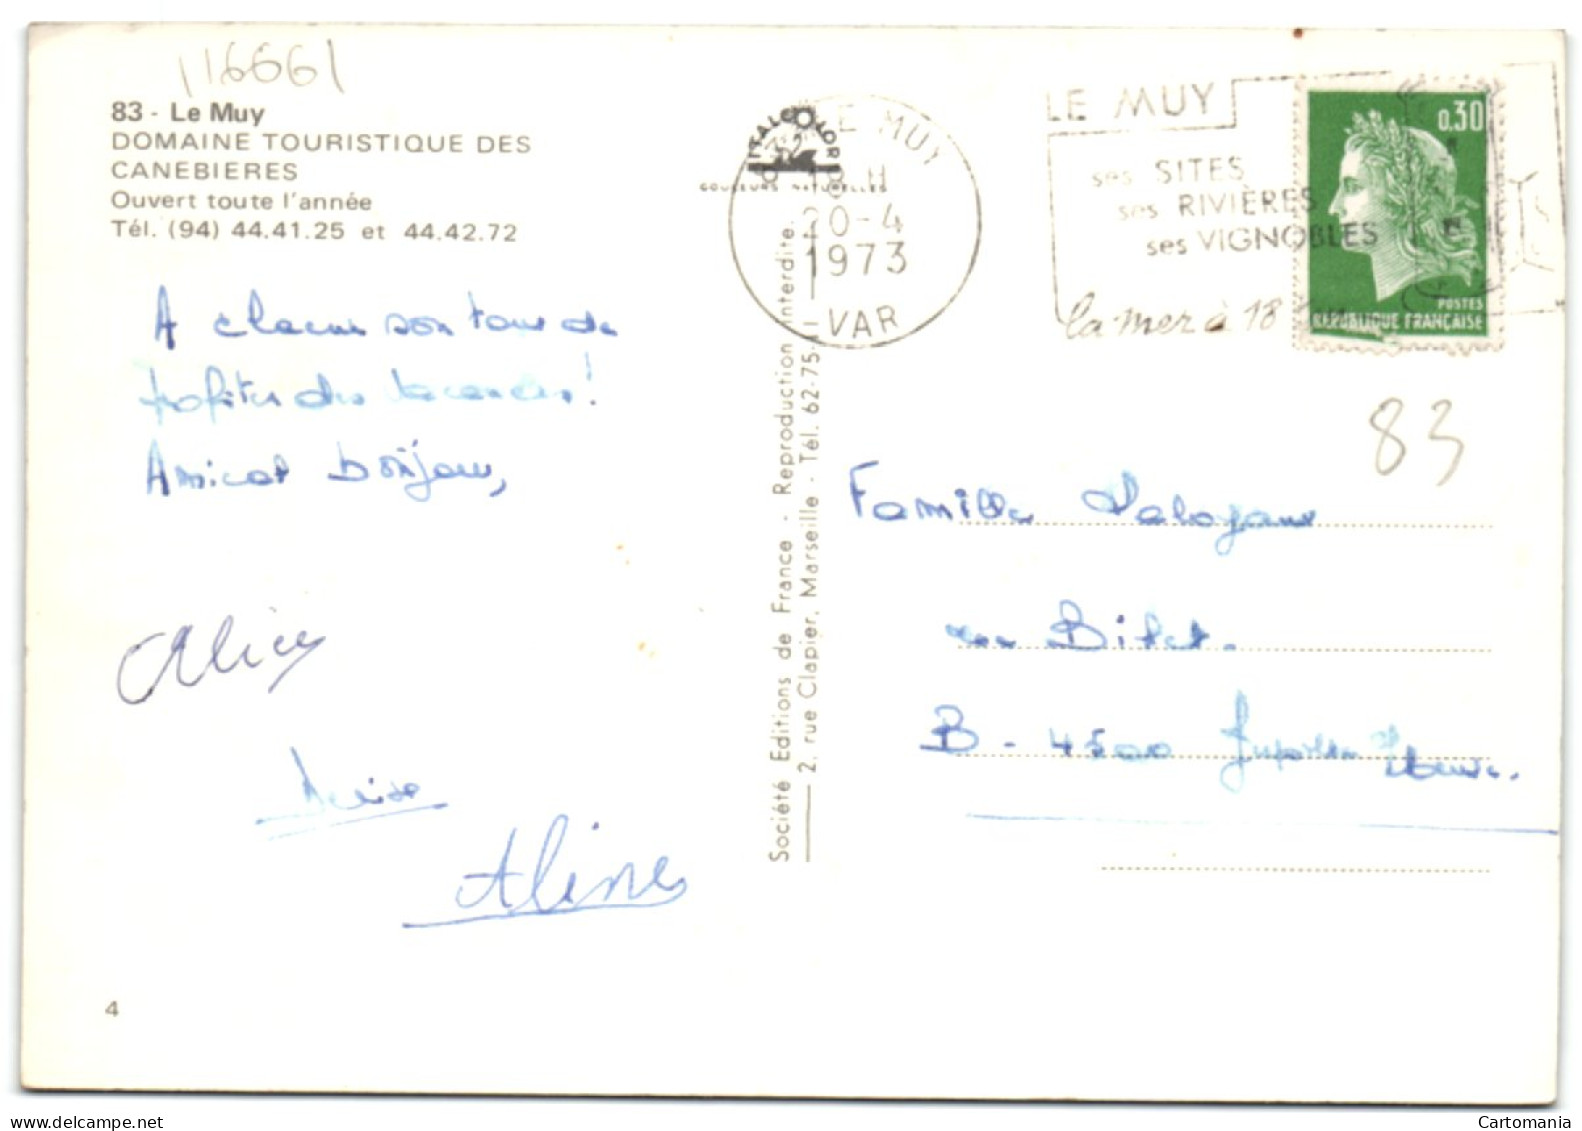 116661
83 - Le Muy
DOMAINE TOURISTIQUE DES
CANEBIERES
Ouvert toute l'année
Tél. (94) 44.41.25 et 44.42.72
A chacun son tour de
profiter des vacances !
Amical bonjour,
Alice
Denise
Aline
4
Société Editions de France - Reproduction interdite.
2, rue Clapier, Marseille - Tél. 62-75-
ITALCOLOR
COULEURS NATURELLES
LE MUY
18 H
20-4
1973
VAR
LE MUY
ses SITES
ses RIVIÈRES
ses VIGNOBLES
la mer à 18
0,30
POSTES
REPUBLIQUE FRANÇAISE
83
Famille
B - 4500 Jupille
Cartomania